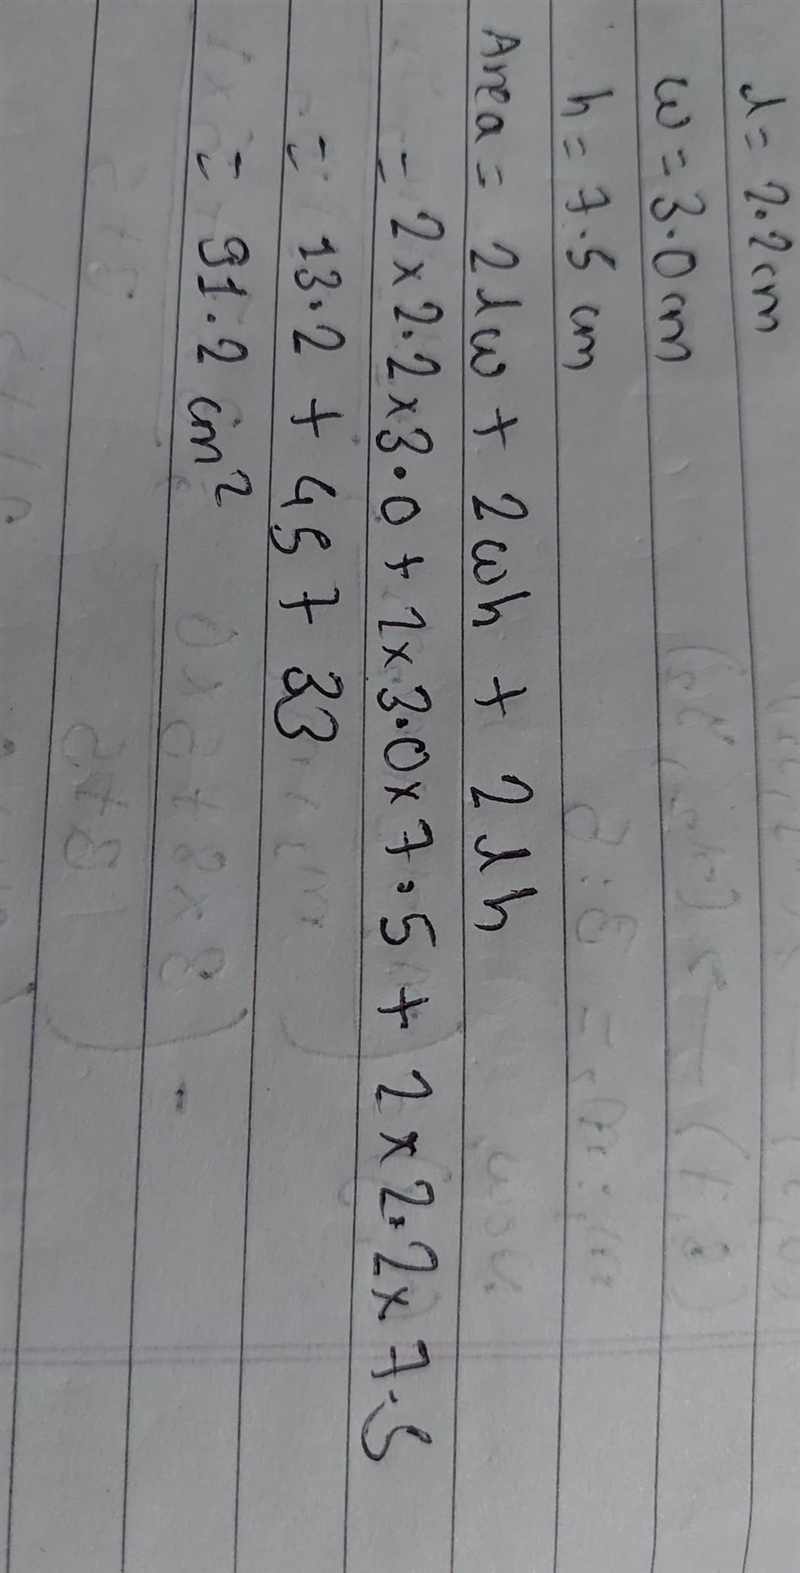 l = 2.2 cm
w = 3.0 cm
h = 7.5 cm
Area = 2lw + 2wh + 2lh
= 2×2.2×3.0 + 2×3.0×7.5 + 2×2.2×7.5
= 13.2 + 45 + 33
= 91.2 cm²